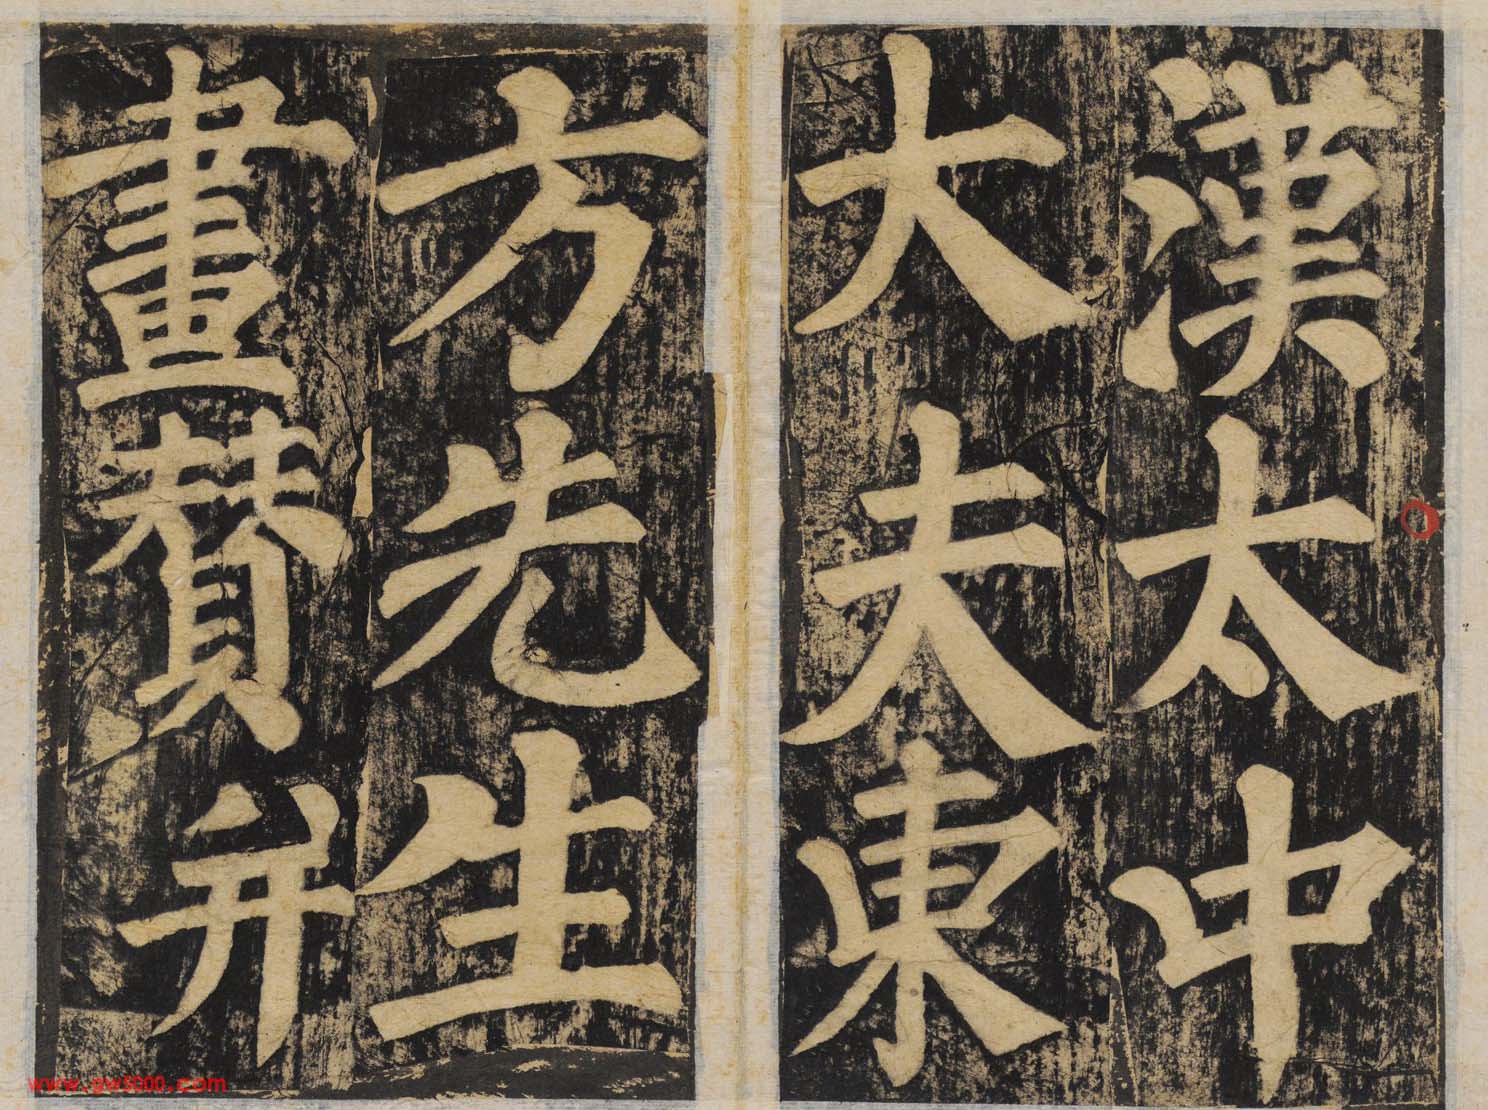 漢太中
大夫東
方先生
畫贊并
www.gw5000.com